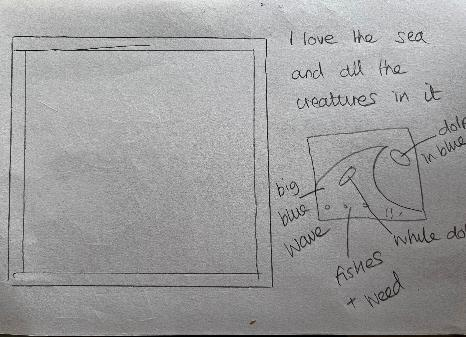 I love the sea
and all the
creatures in it
in blue
big
blue
wave
while
fishes
+ weed